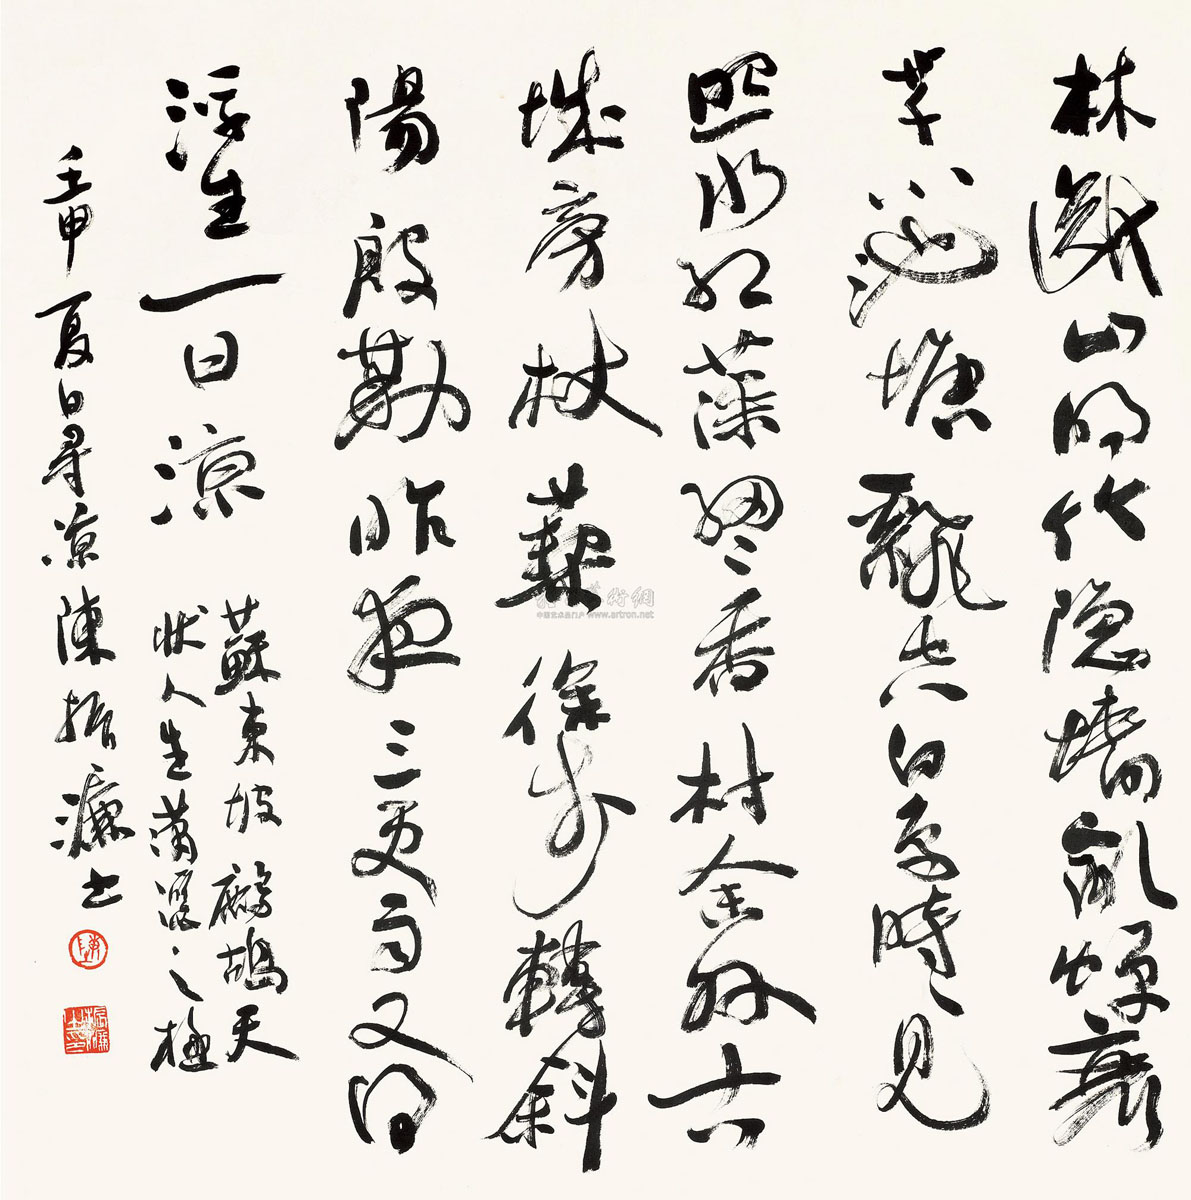 林斷山明竹隐墻亂蟬衰
草小池塘翻空白鳥時〻見
照水紅蕖細〻香村舍外古
城旁杖藜徐步轉斜
陽殷勤昨夜三更雨又得
浮生一日涼
蘇東坡鷓鴣天
狀人生瀟灑之極
壬申夏日尋涼陳振濂书
陳
藝術網
www.artron.net